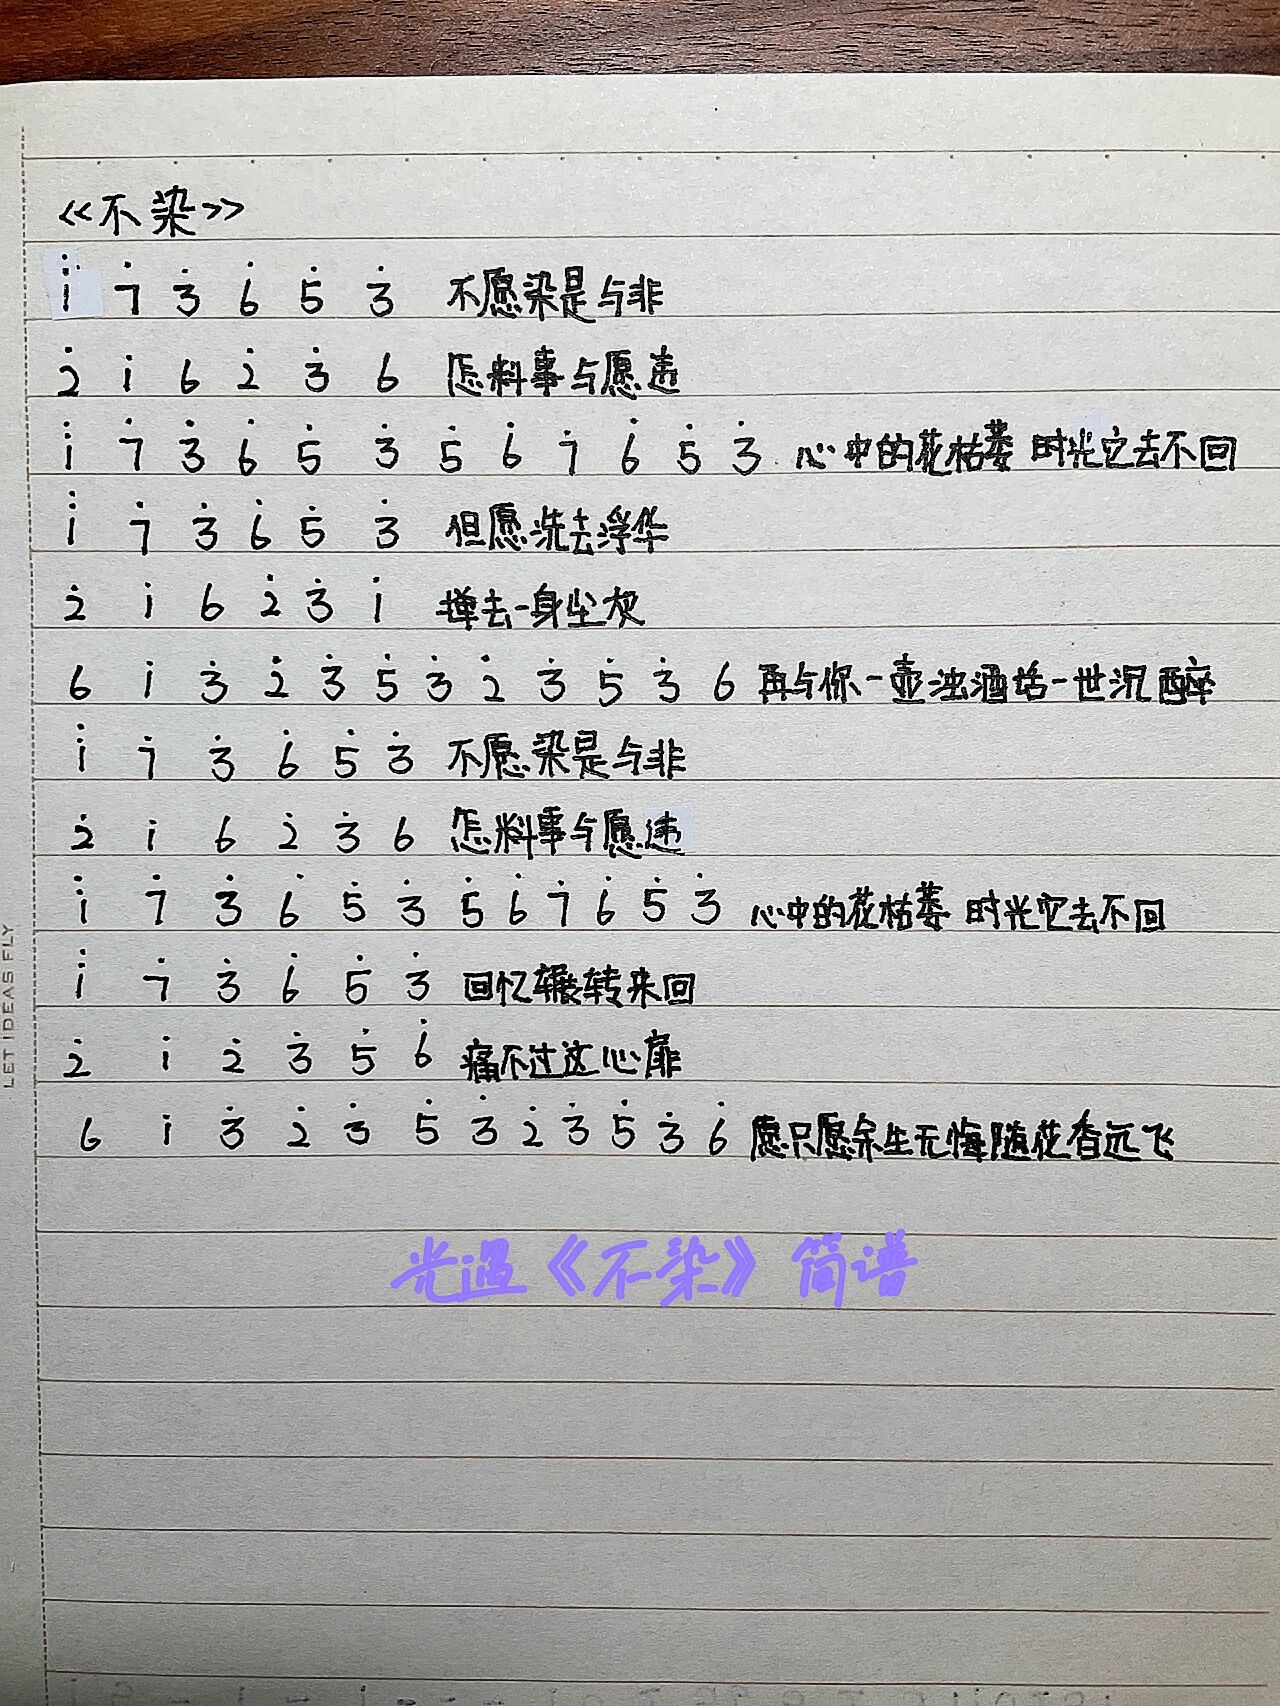 《不染》
i̇ 7̇ 3̇ 6̇ 5̇ 3̇ 不愿染是与非
2̇ i 6 2̇ 3̇ 6 怎料事与愿违
i̇ 7̇ 3̇ 6̇ 5̇ 3̇ 5̇ 6̇ 7̇ 6̇ 5̇ 3̇ 心中的花枯萎 时光它去不回
i̇ 7̇ 3̇ 6̇ 5̇ 3̇ 但愿洗去浮华
2̇ i 6 2̇ 3̇ i 掸去一身尘灰
6 i 3̇ 2̇ 3̇ 5̇ 3̇ 2̇ 3̇ 5̇ 3̇ 6 再与你一壶浊酒话一世沉醉
i̇ 7̇ 3̇ 6̇ 5̇ 3̇ 不愿染是与非
2̇ i 6 2̇ 3̇ 6 怎料事与愿违
i̇ 7̇ 3̇ 6̇ 5̇ 3̇ 5̇ 6̇ 7̇ 6̇ 5̇ 3̇ 心中的花枯萎 时光它去不回
i̇ 7̇ 3̇ 6̇ 5̇ 3̇ 回忆辗转来回
2̇ i 2̇ 3̇ 5̇ 6̇ 痛不过这心扉
6 i 3̇ 2̇ 3̇ 5̇ 3̇ 2̇ 3̇ 5̇ 3̇ 6̇ 愿只愿余生无悔随花香远飞
光遇《不染》简谱
LET IDEAS FLY